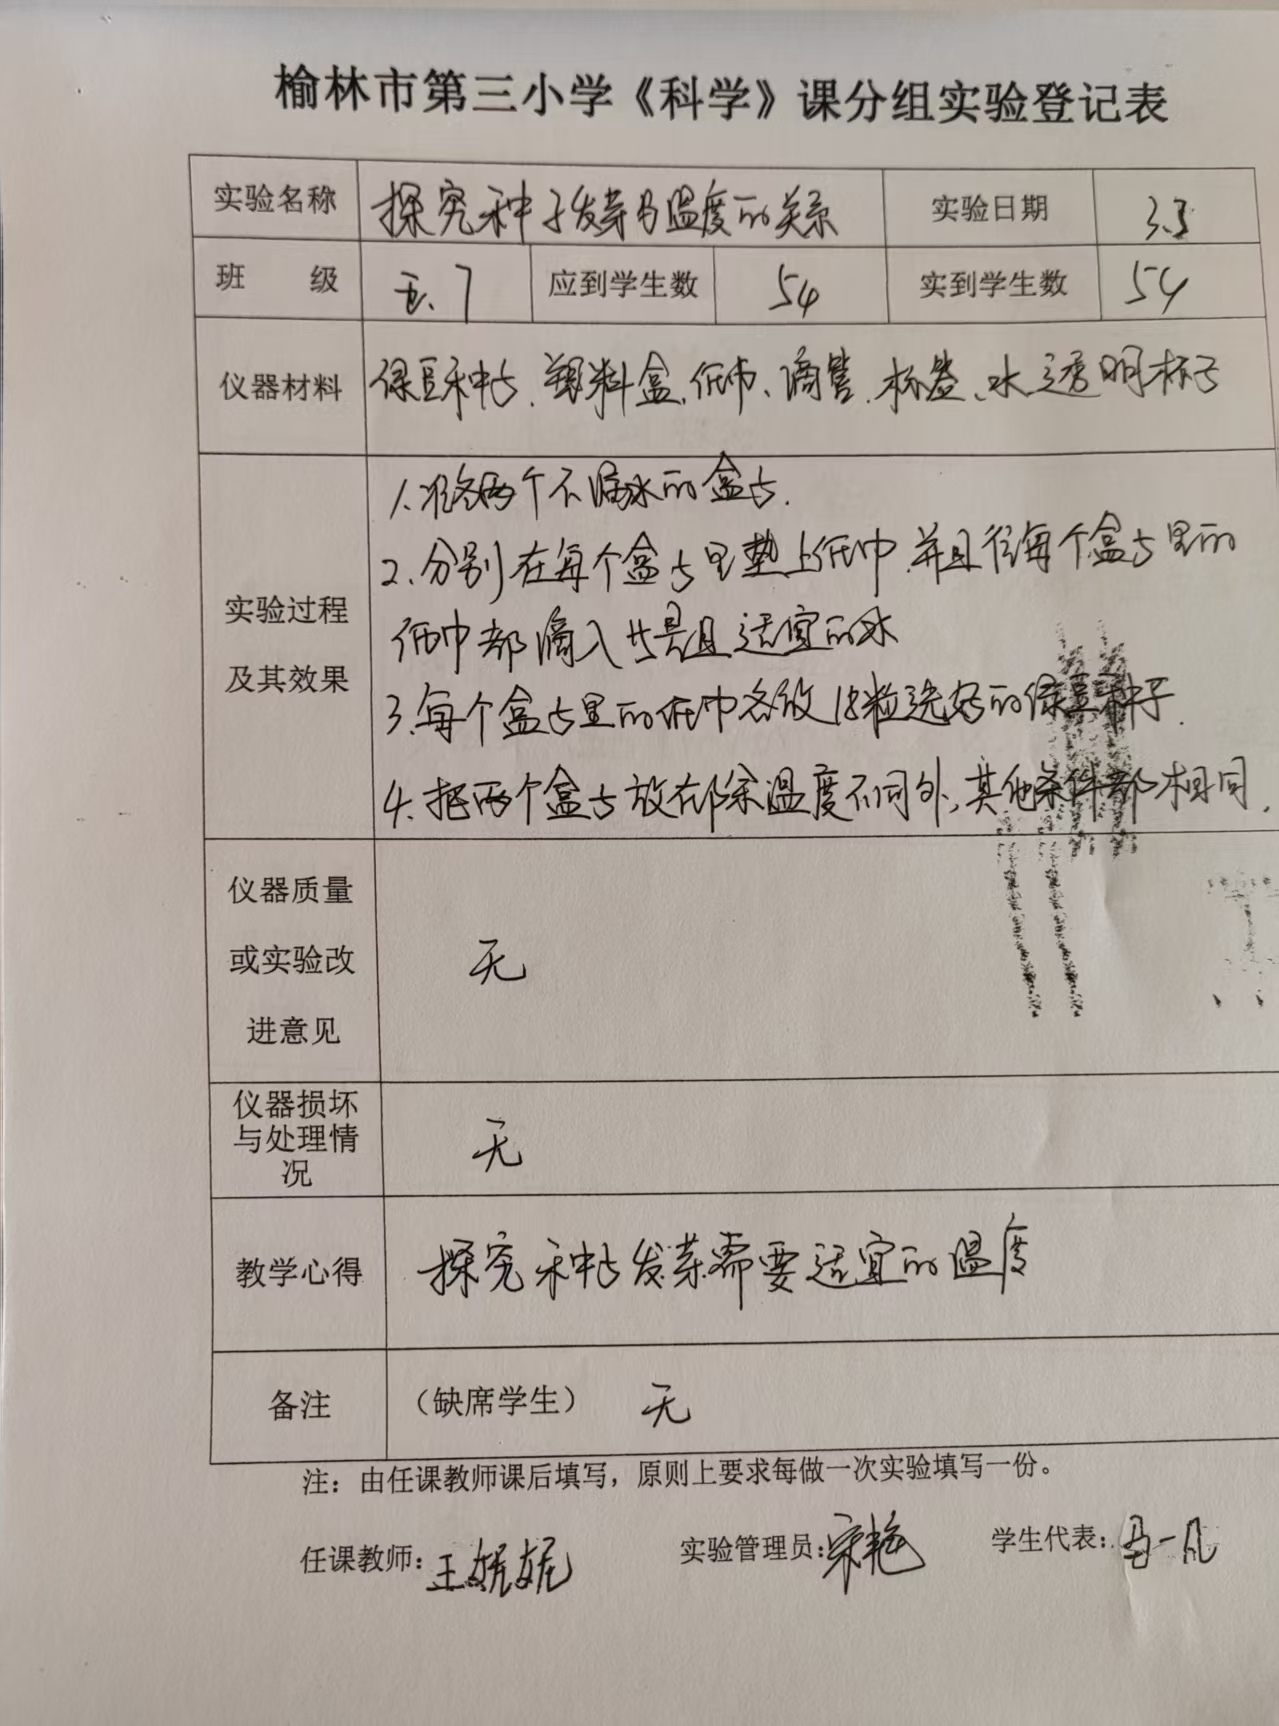 榆林市第三小学《科学》课分组实验登记表
实验名称 探究种子发芽与温度的关系 实验日期 3.3
班 级 五.7 应到学生数 54 实到学生数 54
仪器材料 绿豆种子、塑料盒、纸巾、滴管、标签、水、透明杯子
1.准备两个不漏水的盒子.
2.分别在每个盒子里垫上纸巾.并且往每个盒子里的
实验过程 纸巾都滴入 且适宜的水
及其效果 3.每个盒子里的纸巾各放18粒选好的绿豆种子.
4.把两个盒子放在除温度不同外,其他条件都相同.
仪器质量
或实验改 无
进意见
仪器损坏
与处理情 无
况
教学心得 探究种子发芽需要适宜的温度
备注 (缺席学生) 无
注:由任课教师课后填写,原则上要求每做一次实验填写一份。
任课教师:王妮妮 实验管理员:宋艳 学生代表:马一凡